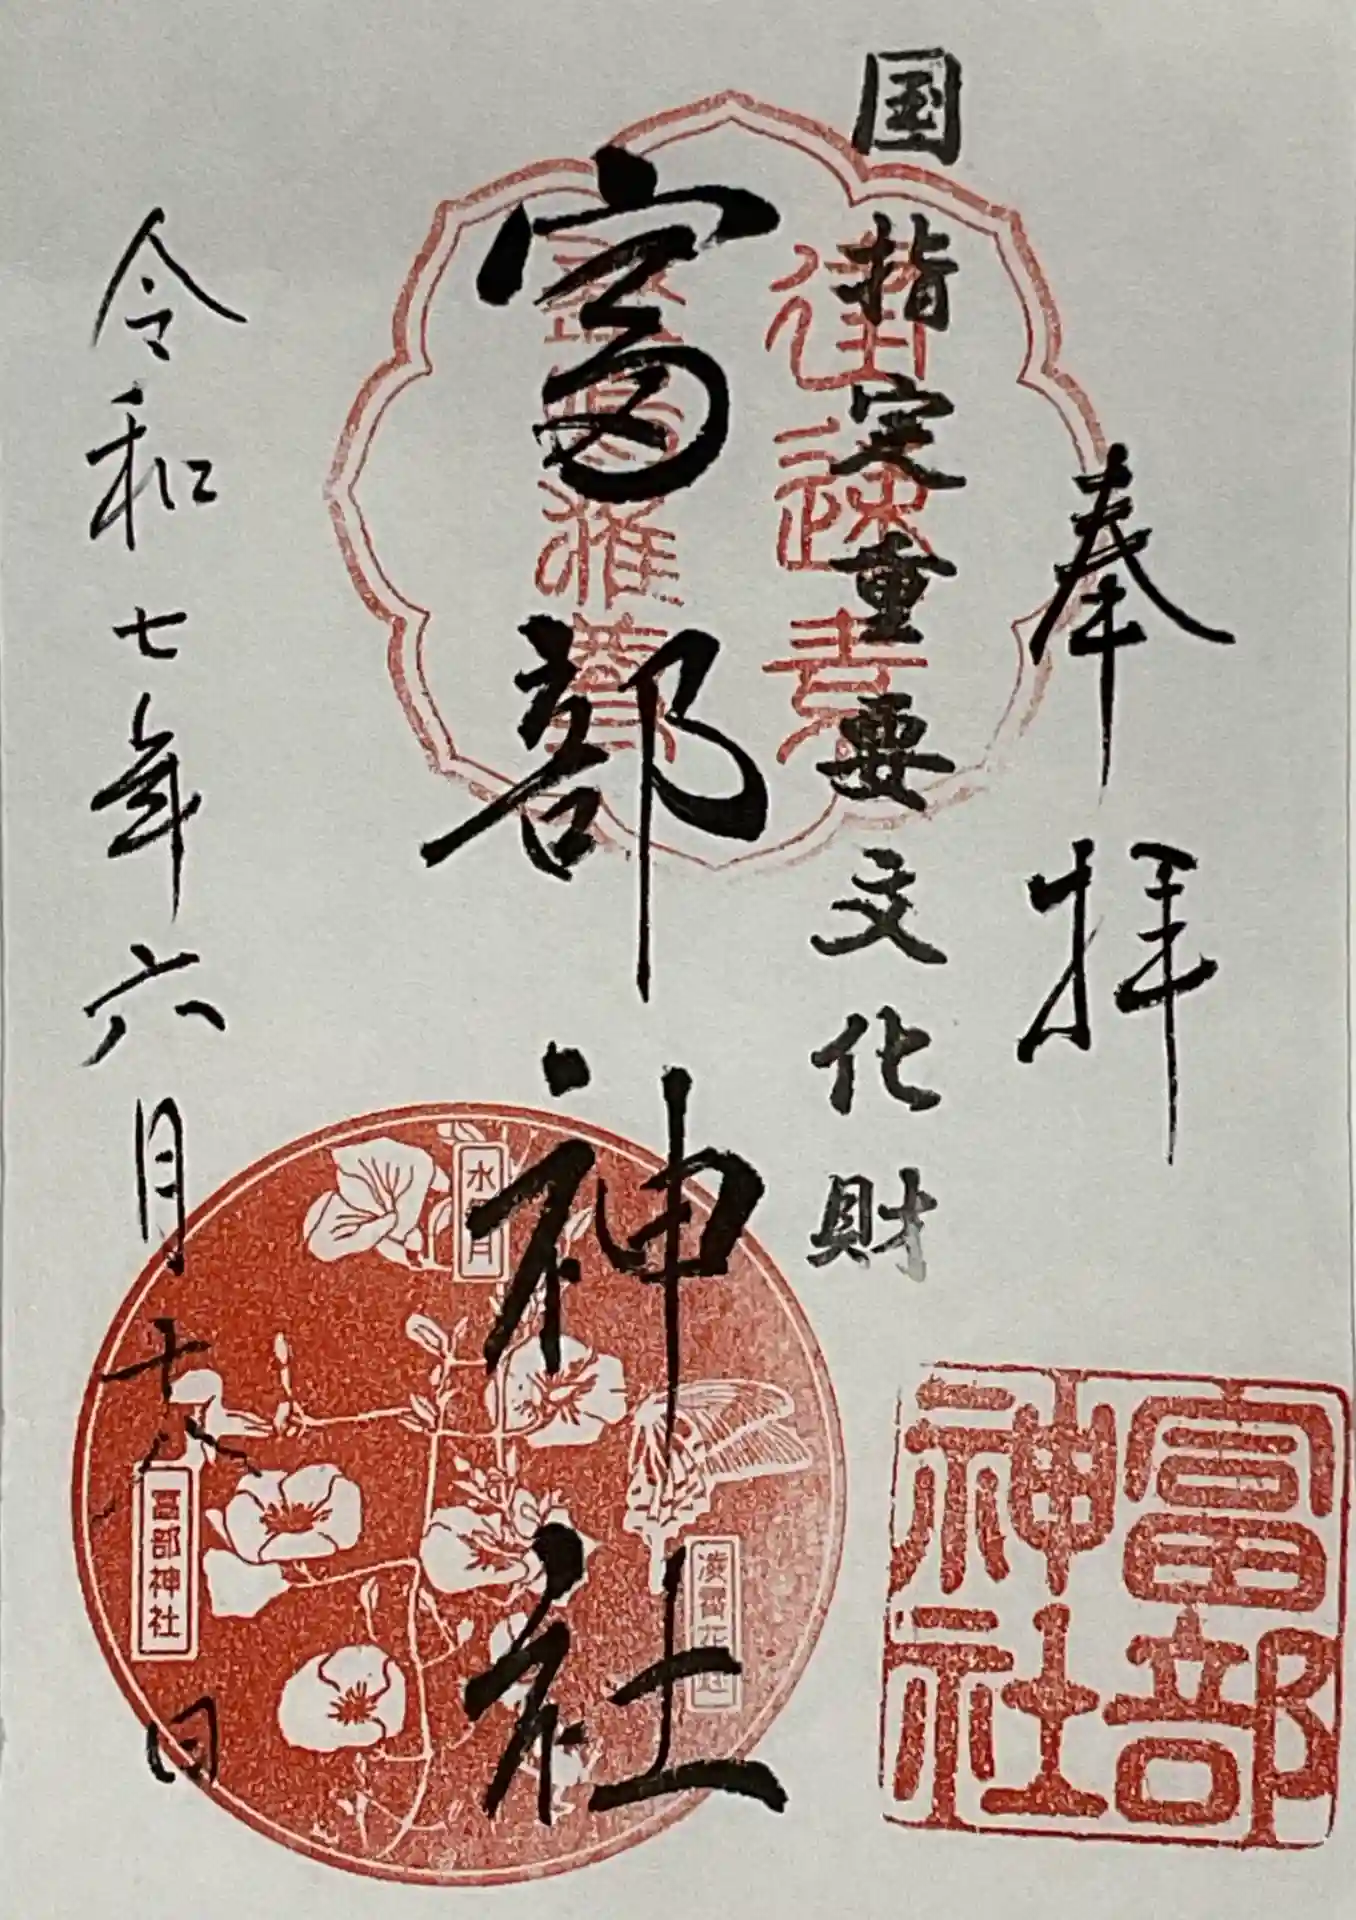 奉拝
国指定重要文化財
富部神社
令和七年六月十八日
水無月
冨部神社
富部
神社